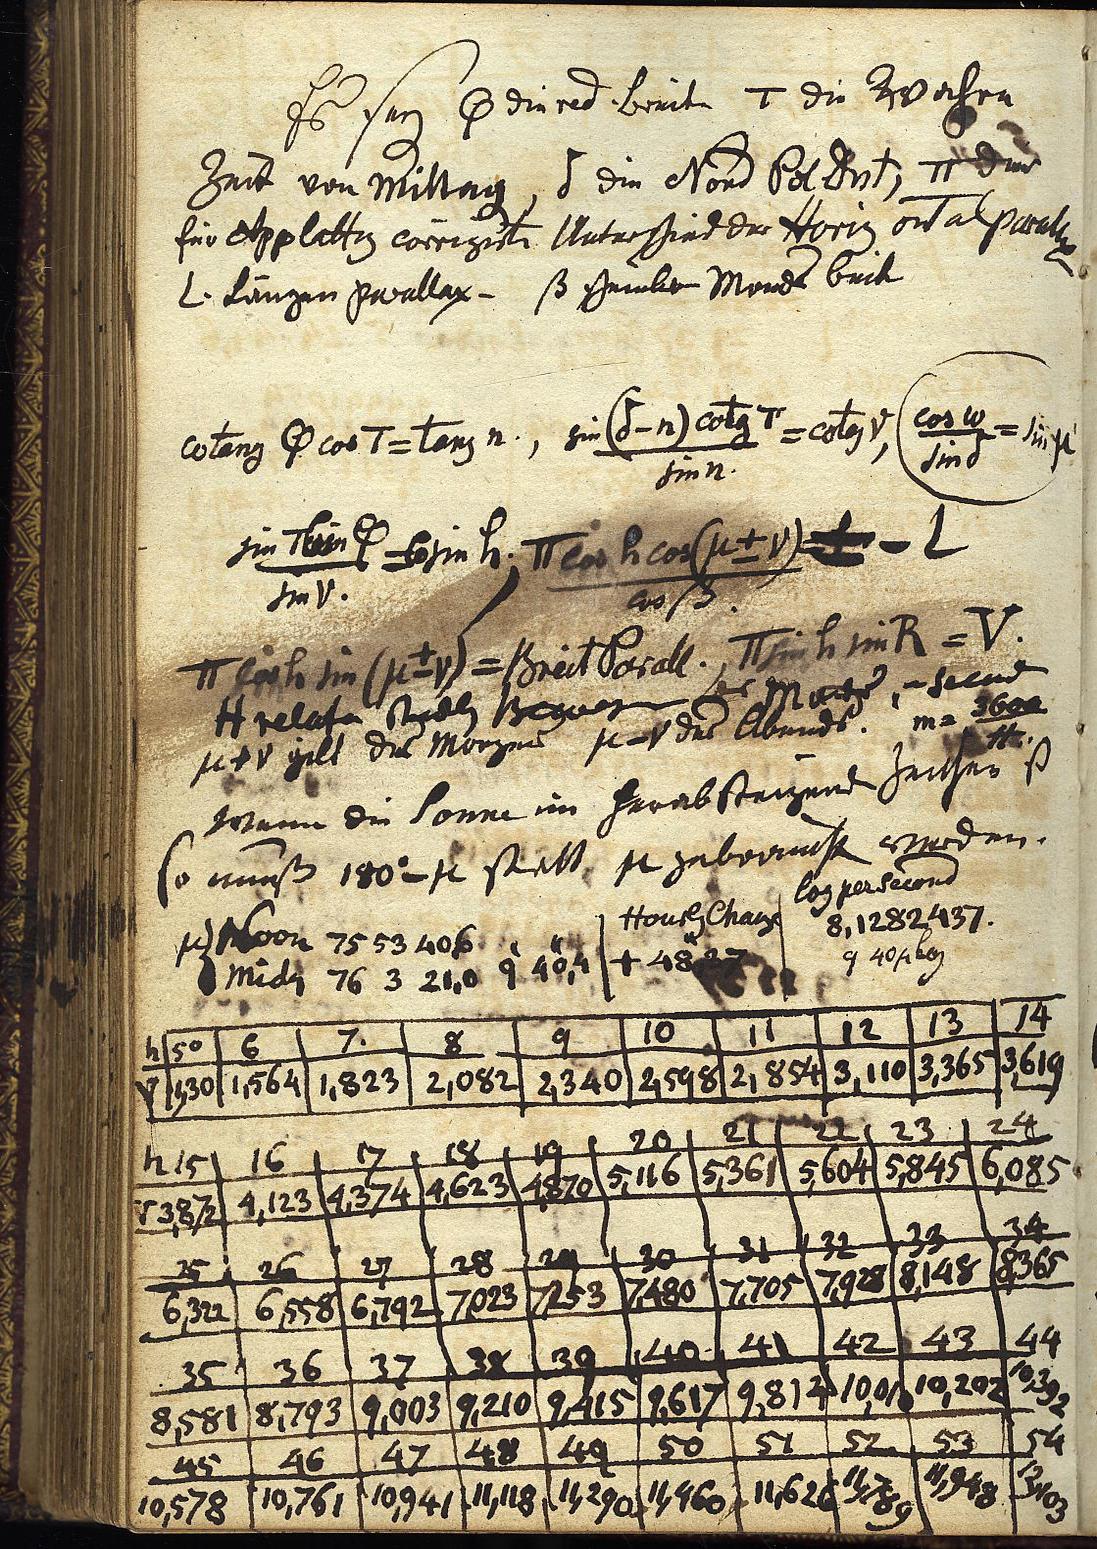 Es sey φ die red. Breite T die Wahre
Zeit von Mittag, δ die Nord Pol Dist, π der
für Applattg corrigirte Unterschied der Horizontal Parallax
L. Längen parallax - β scheinbare Monds breite
cotang φ cos T = tang n., sin (δ-n) cotg T / sin n. = cotg ν, (cos ω / sin δ = sin μ)
sin T sin φ / sin ν. = sin h. π cos h cos (μ ± ν) / cos β. = L
π cos h sin (μ ± ν) = Breit Parall., π sin h sin R = V.
H relative des Mondes, - Secund
μ+ν gilt des Morgens μ-ν des Abends. m = 3600 / H.
Wenn die Sonne im herabsteigend Zeichen
so muß 180° - μ statt μ gebraucht werden.
log per Second
μ) Noon 75 53 40,6 Hourly Change 8,1282437.
Midn 76 3 21,0 9' 40",4 + 48"27 9 40 μ log
h 5° 6 7. 8 9 10 11 12 13 14
V 1,30 1,564 1,823 2,082 2,340 2,598 2,854 3,110 3,365 3,619
h 15 16 17 18 19 20 21 22 23 24
V 3,872 4,123 4,374 4,623 4,870 5,116 5,361 5,604 5,845 6,085
25 26 27 28 29 30 31 32 33 34
6,322 6,558 6,792 7,023 7,253 7,480 7,705 7,928 8,148 8,365
35 36 37 38 39 40 41 42 43 44
8,581 8,793 9,003 9,210 9,415 9,617 9,814 10,01 10,202 10,392
45 46 47 48 49 50 51 52 53 54
10,578 10,761 10,941 11,118 11,290 11,460 11,626 11,789 11,948 12,103